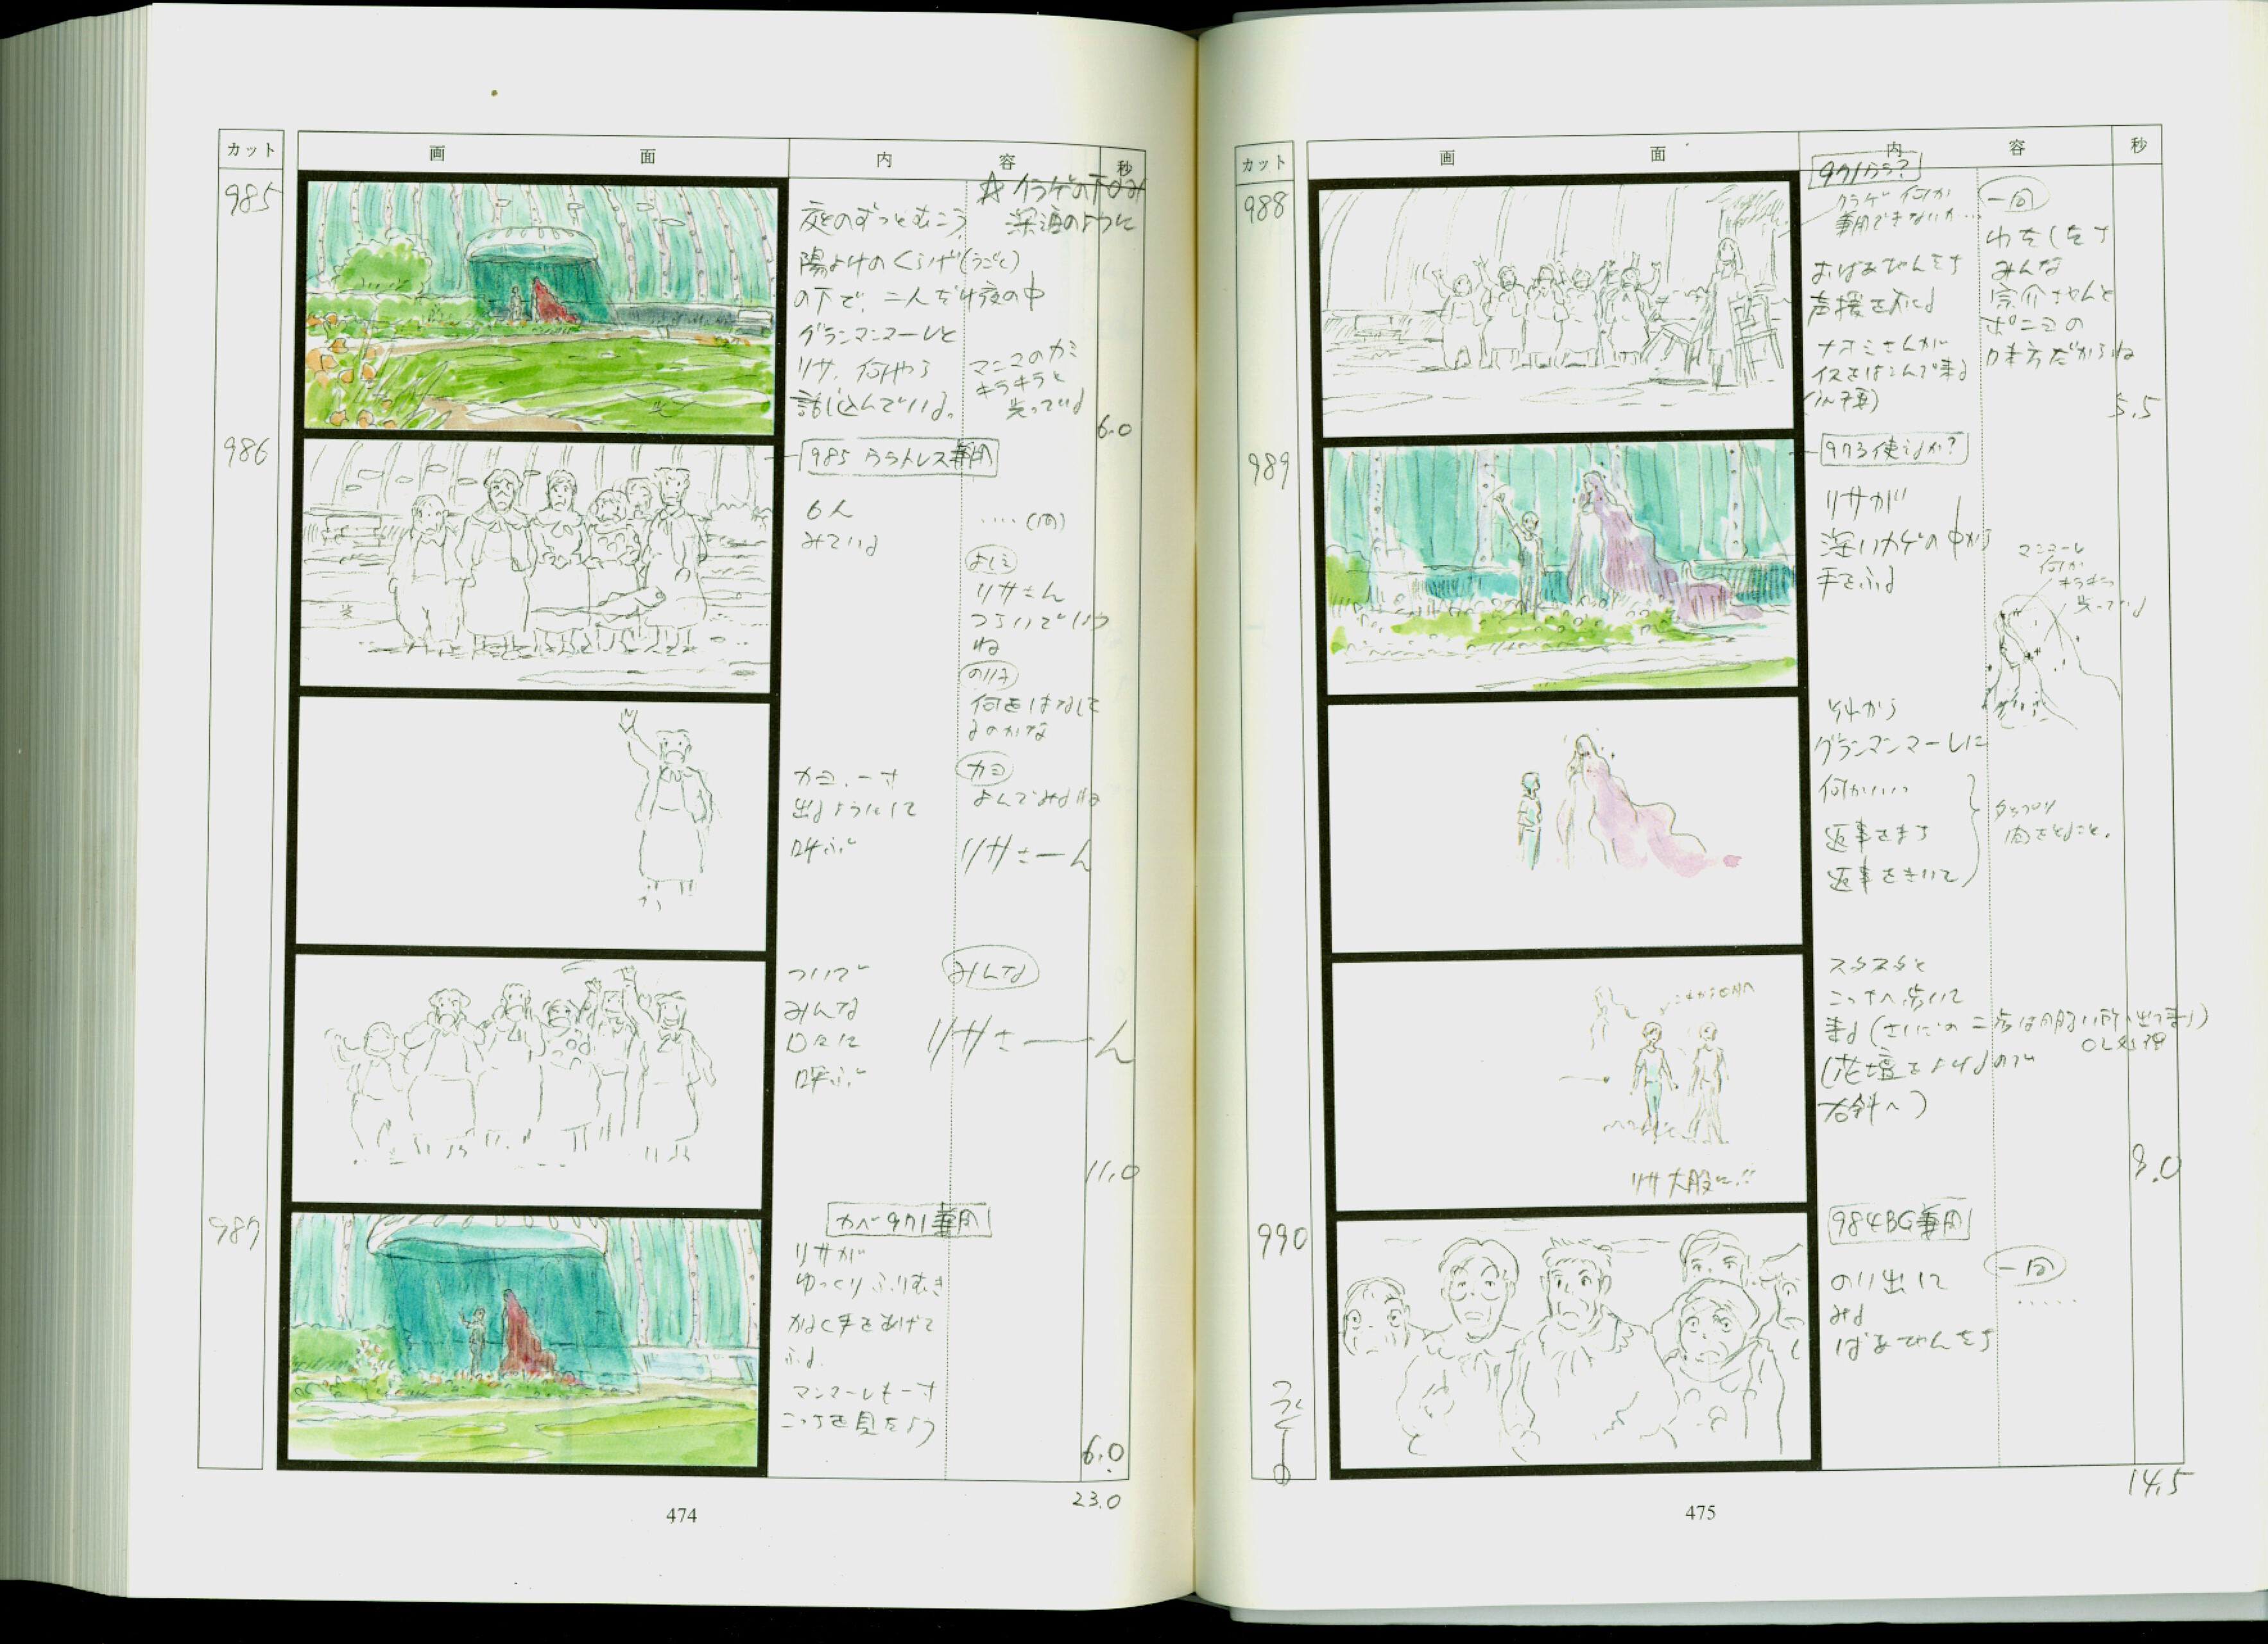 カット
画 面
内 容
秒
985
☆クラゲの下のみ
深海のように
庭のずっとむこう
陽よけのくらげ(うごく)
の下で、二人だけ夜の中
グランマンマーレと
リサ、何やら
話し込んでいる。
マンマのカミ
キラキラと
光っている
6.0
986
985 ラストレス兼用
6人
みている
‥‥(間)
よしえ
リサさん
つらいでしょう
ね
のりた
何をはなして
るのかな
カヨ、一寸
出るようにして
呼ぶ
カヨ
よんでみるね
リサさーん
ついで
みんな
口々に
呼ぶ
みんな
リサさーーん
11.0
987
カベ971兼用
リサが
ゆっくりふりむき
かるく手をあげて
ふる。
マンマーレも一寸
こっちを見たよう
6.0
23.0
474
カット
画 面
内 容
秒
988
971から?
クラゲ 何か
兼用できないか…
おばあちゃんたち
声援を送る
ナオミさんが
イスをはこんで来る
一同
わたしたち
みんな
宗介ちゃんと
ポニョの
味方だからね
5.5
989
973使えるか?
リサが
深いカゲの中から
手をふる
マンマーレ
何か
キラキラ
光っている
それから
グランマンマーレに
何かいい
返事をまち
返事をきいて
たっぷり
間をとること。
スタスタと
こっちへ歩いて
来る(さいごの二歩は明るい所へ出て来る)
OL処理
(花壇をよけるので
右斜へ)
リサ大股に!!
9.0
990
984BG兼用
のり出して
みる
ばあちゃんたち
一同
‥‥‥
つづく
14.5
475